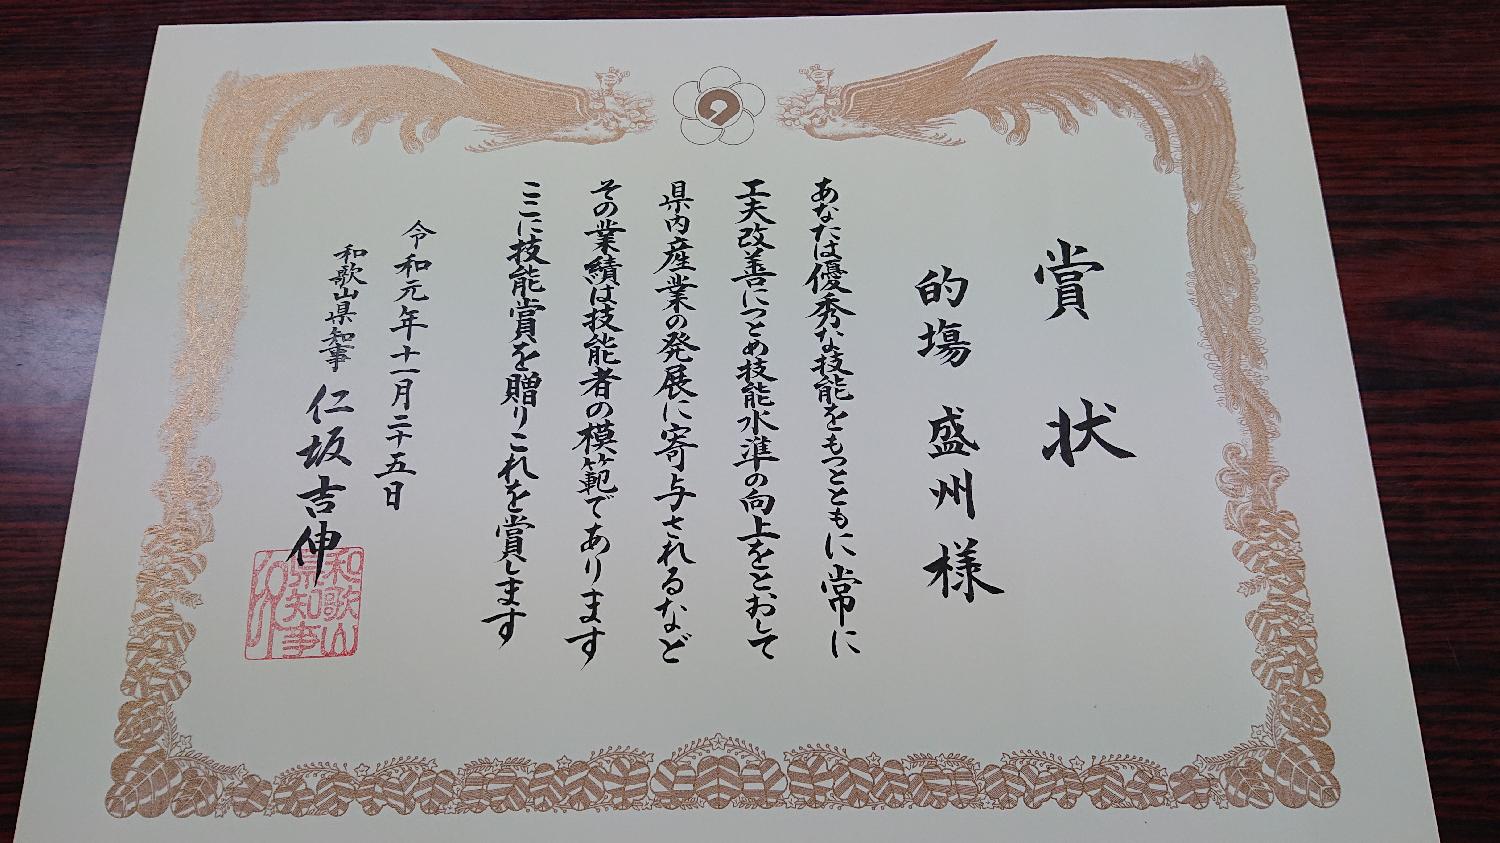 賞状
的場 盛州 様
あなたは優秀な技能をもつとともに常に
工夫改善につとめ技能水準の向上をとおして
県内産業の発展に寄与されるなど
その業績は技能者の模範であります
ここに技能賞を贈りこれを賞します
令和元年十一月二十五日
和歌山県知事 仁坂吉伸
和歌山県知事之印